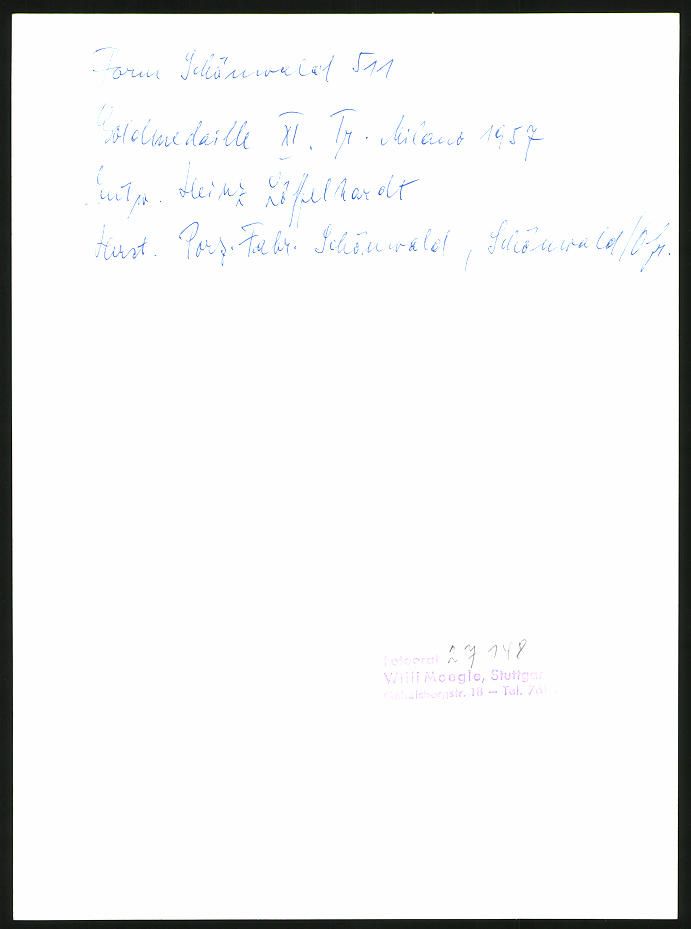 Form Schönwald 511
Goldmedaille XI. Tr. Milano 1957
Entw. Heinz Löffelhardt
Herst. Porz. Fabr. Schönwald, Schönwald/Ofr.
27 148
Willi Moegle, Stuttgar
18 — Tel.